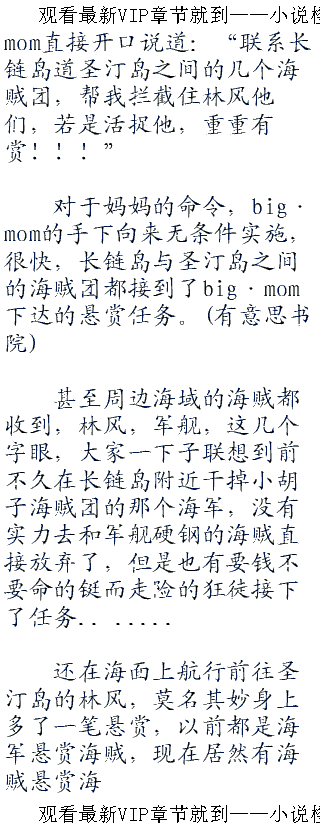 观看最新VIP章节就到——小说检
mom直接开口说道：“联系长
链岛道圣汀岛之间的几个海
贼团，帮我拦截住林风他
们，若是活捉他，重重有
赏！！！”
对于妈妈的命令，big·
mom的手下向来无条件实施，
很快，长链岛与圣汀岛之间
的海贼团都接到了big·mom
下达的悬赏任务。(有意思书
院)
甚至周边海域的海贼都
收到，林风，军舰，这几个
字眼，大家一下子联想到前
不久在长链岛附近干掉小胡
子海贼团的那个海军，没有
实力去和军舰硬钢的海贼直
接放弃了，但是也有要钱不
要命的铤而走险的狂徒接下
了任务........
还在海面上航行前往圣
汀岛的林风，莫名其妙身上
多了一笔悬赏，以前都是海
军悬赏海贼，现在居然有海
贼悬赏海
观看最新VIP章节就到——小说检